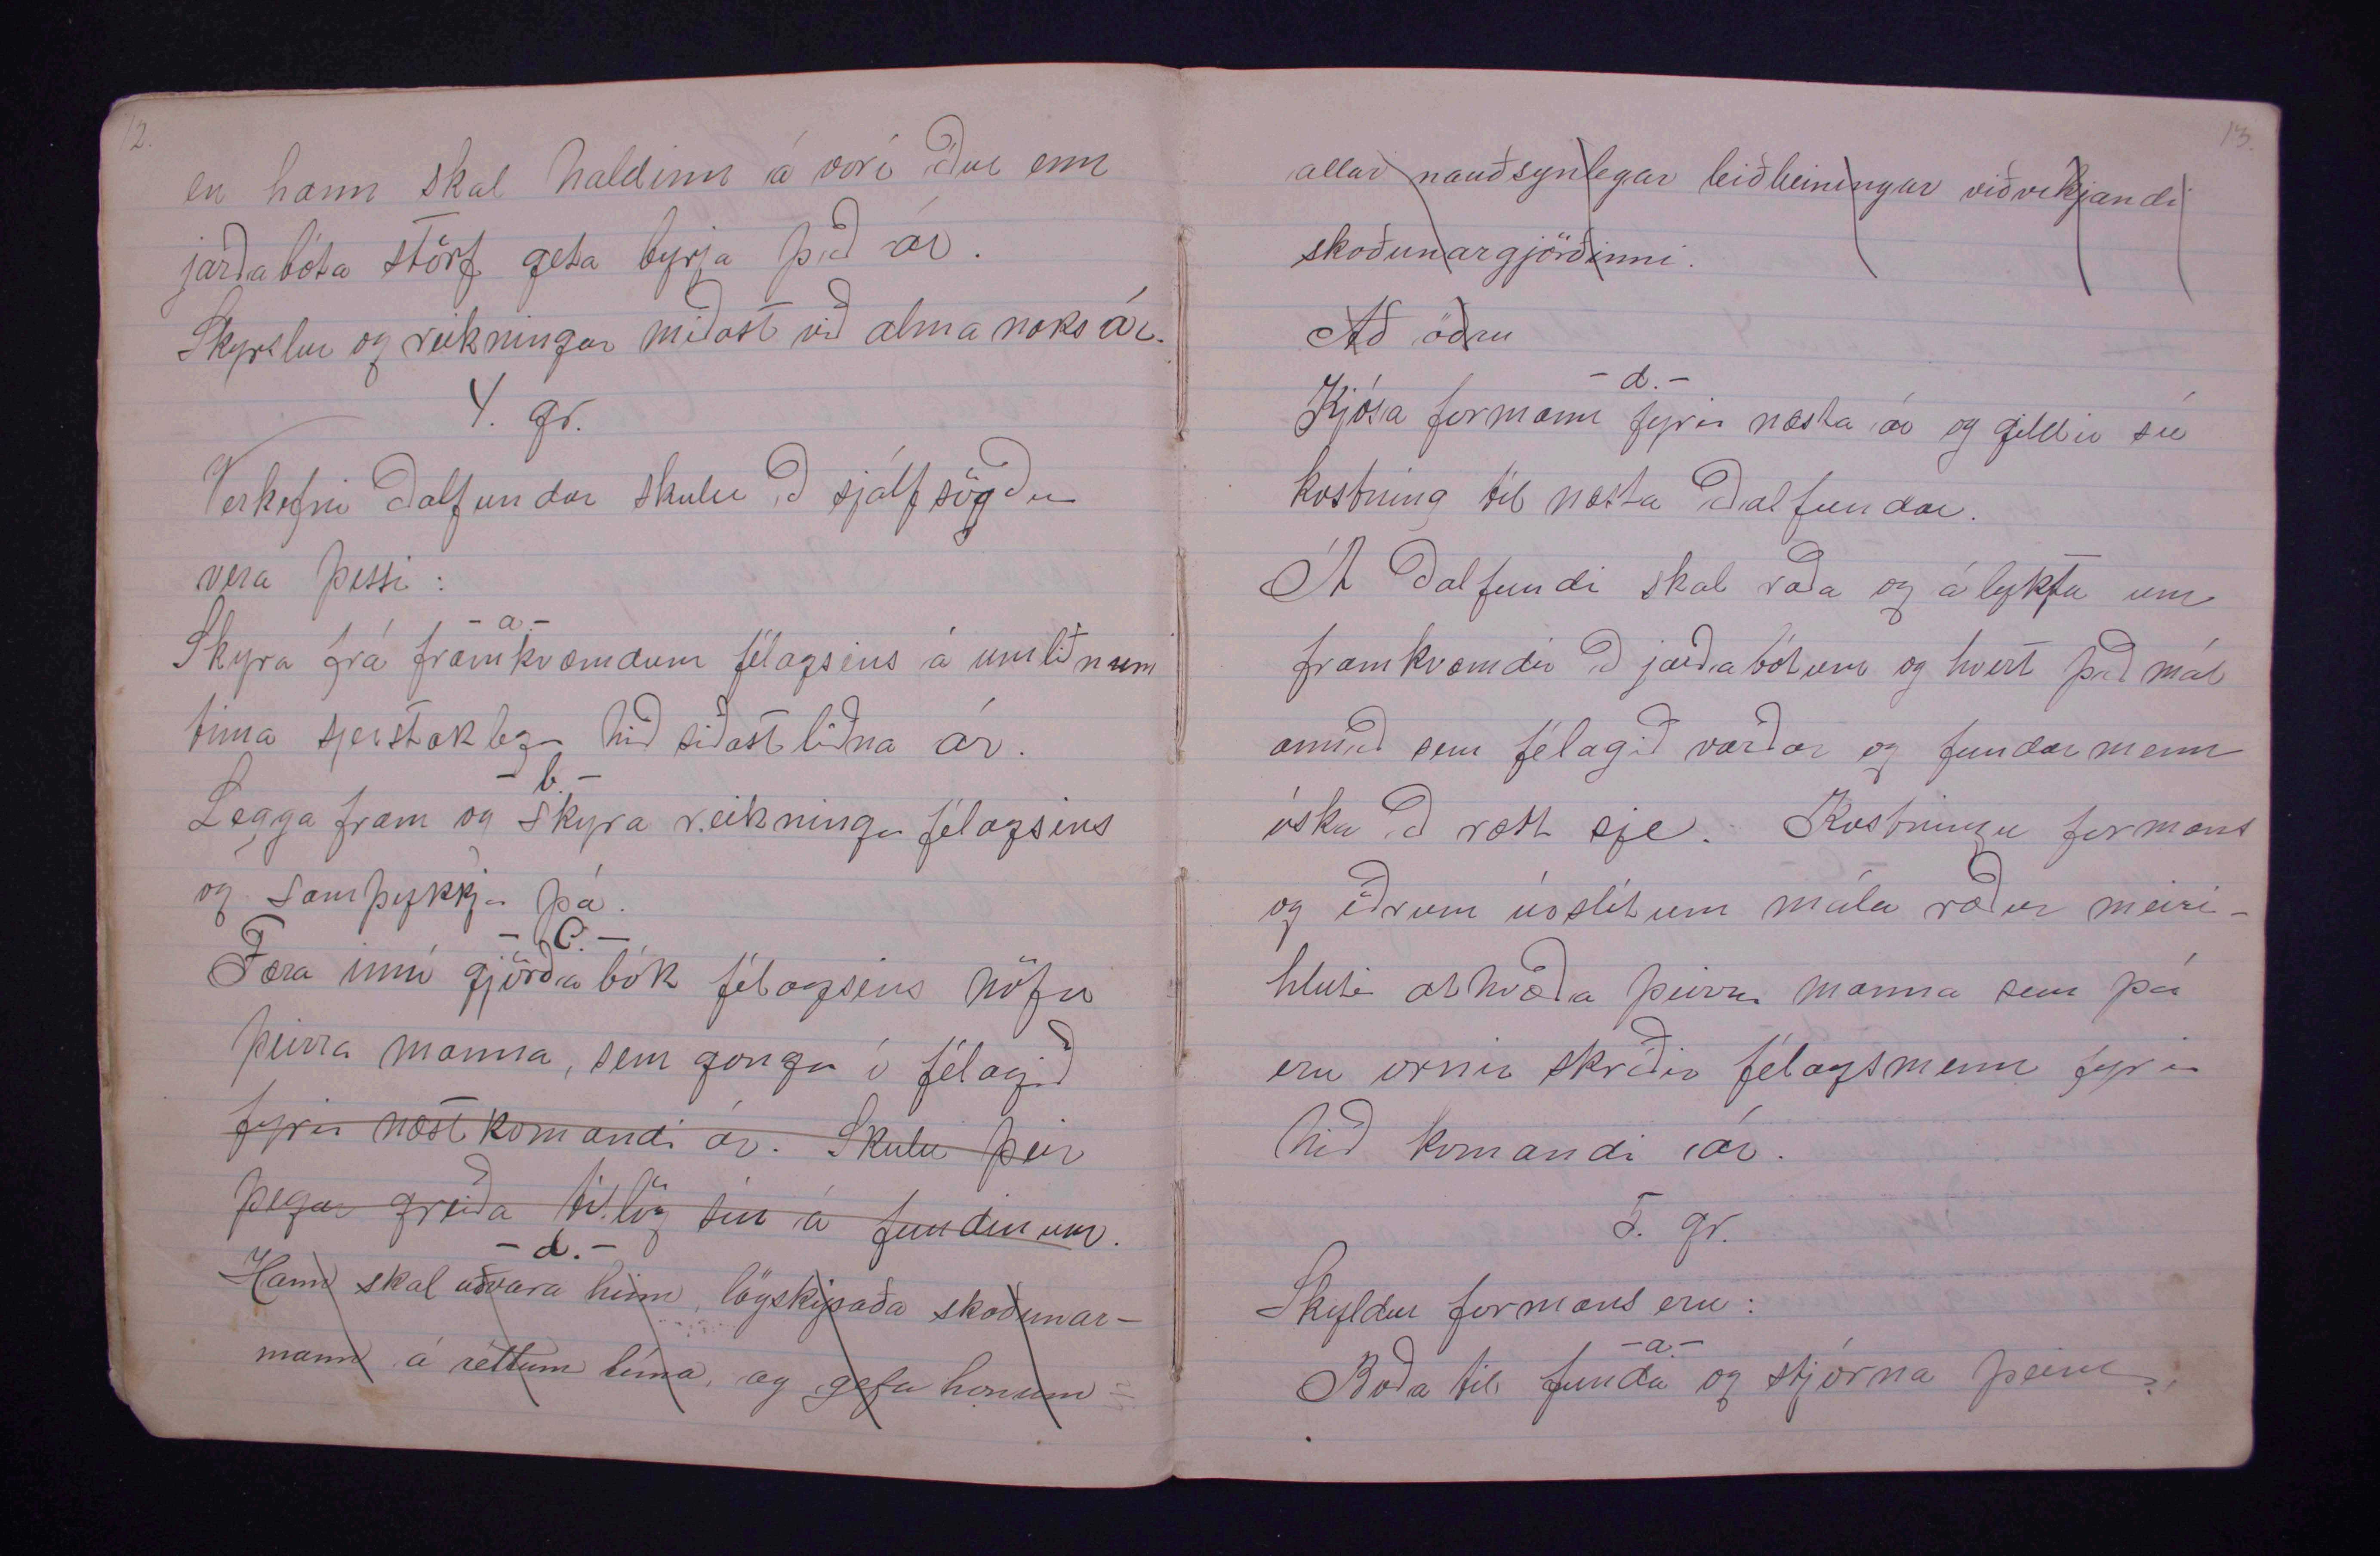 12.
en hann skal haldinn á vori áður enn
jarðabóta störf geta byrja það ár.
Skyrslur og reikningar miðast við almanaks ár.
4. gr.
Verkefni aðalfundar skulu að sjálfsögðu
vera þessi:
- a. -
Skyra frá framkvæmdum félagsins á umliðnum
tima sjerstaklega hið siðastliðna ár.
- b. -
Leggja fram og skyra reikninga félagsins
og samþykkja þá.
- C. -
Færa inní gjörðabók félagsins nöfn
þeirra manna, sem ganga í félagið
fyrir næstkomandi ár. Skulu þeir
þegar greiða tillög sín á fundinum.
- d. -
Hann skal aðvara hinn lögskipaða skoðunar-
mann á réttum tíma, og gefa honum
13.
allar nauðsynlegar leiðbeiningar viðvíkjandi
skoðunargjörðinni.
Að öðru
- d. -
Kjósa formann fyrir næsta ár og gildir sú
kostning til næsta aðalfundar.
Á aðalfundi skal ræða og álykta um
framkvæmdir að jarðabótum og hvert það mál
annað sem félagið varðar og fundarmenn
óska að rætt sje. Kostningu formans
og öðrum úrslitum mála ræður meiri-
hluti atkvæða þeirra manna sem þá
eru ornir skráðir félagsmenn fyrir
hið komandi ár.
5. gr.
Skyldur formans eru:
- a. -
Boða til funda og stjórna þeim.